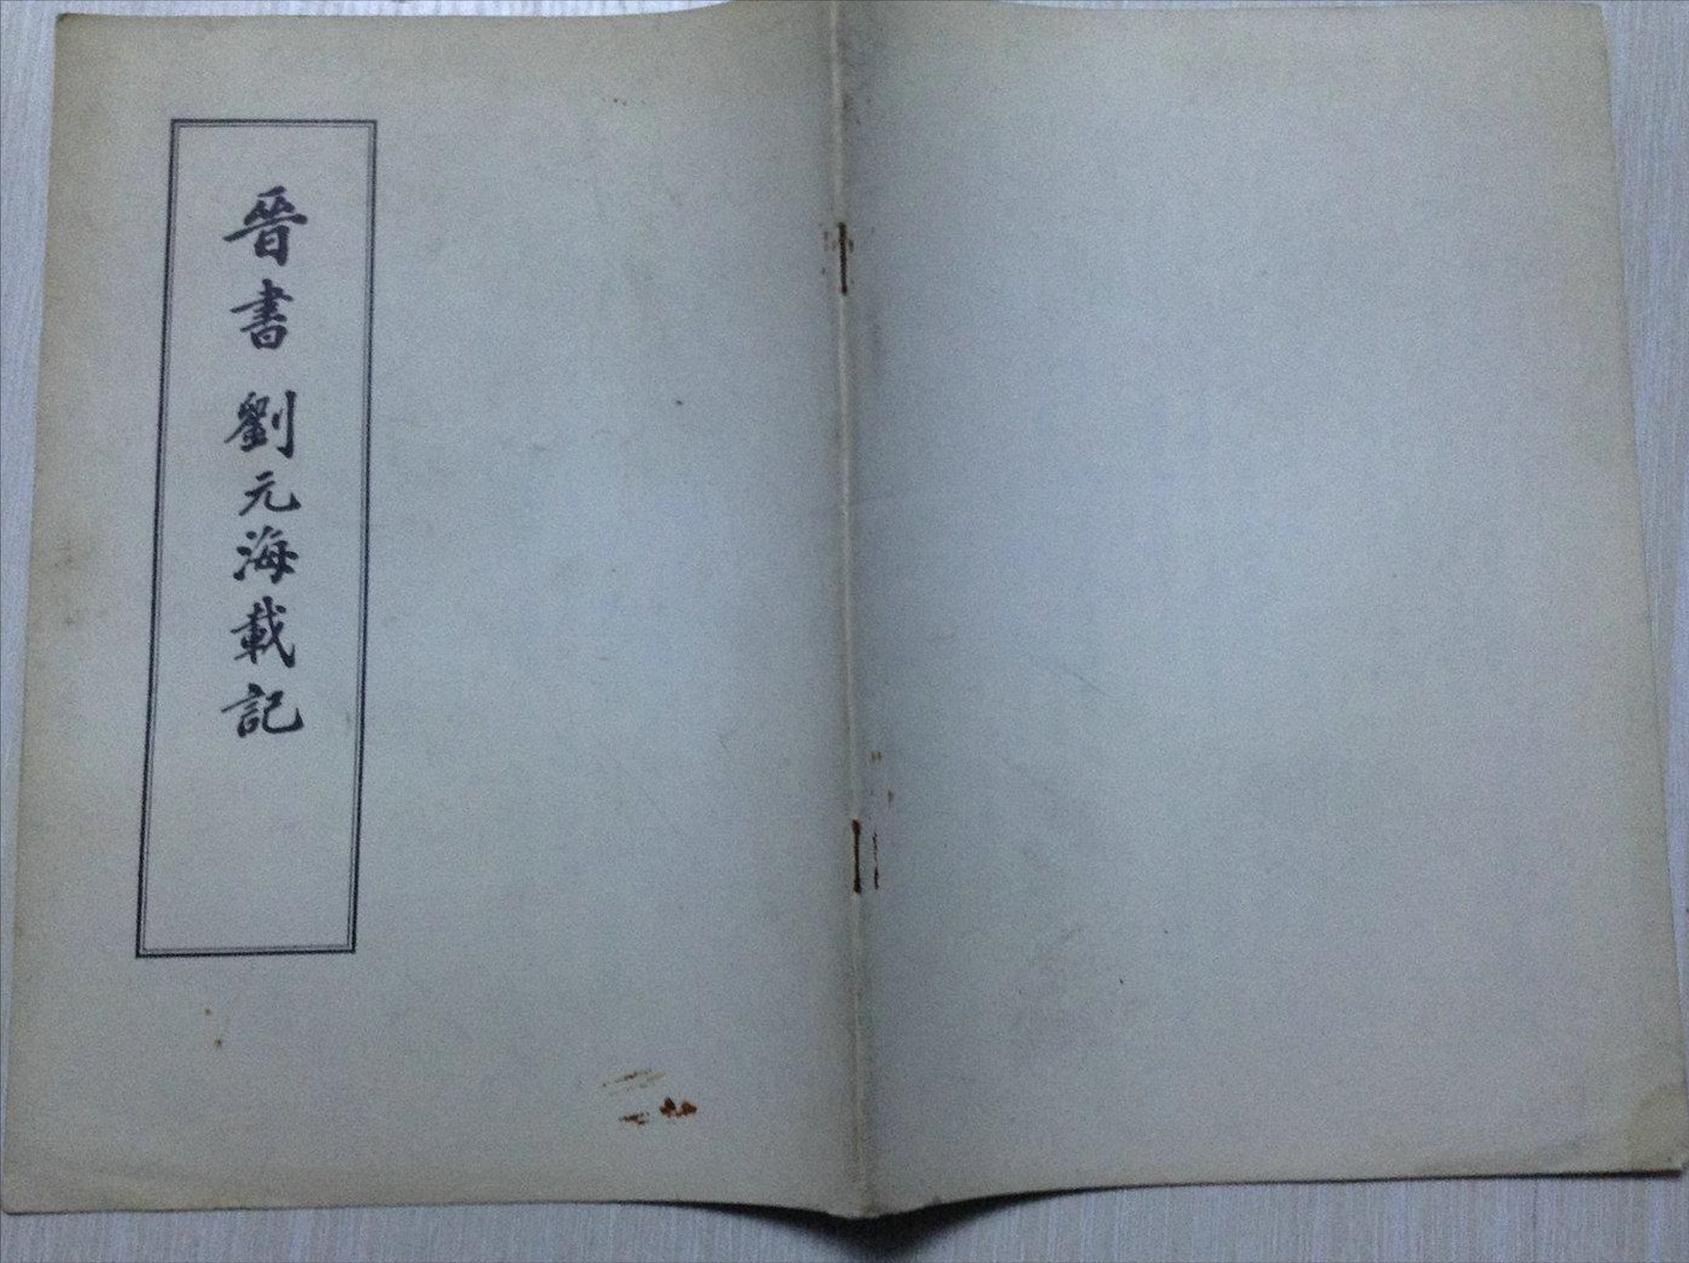 晉書 劉元海載記